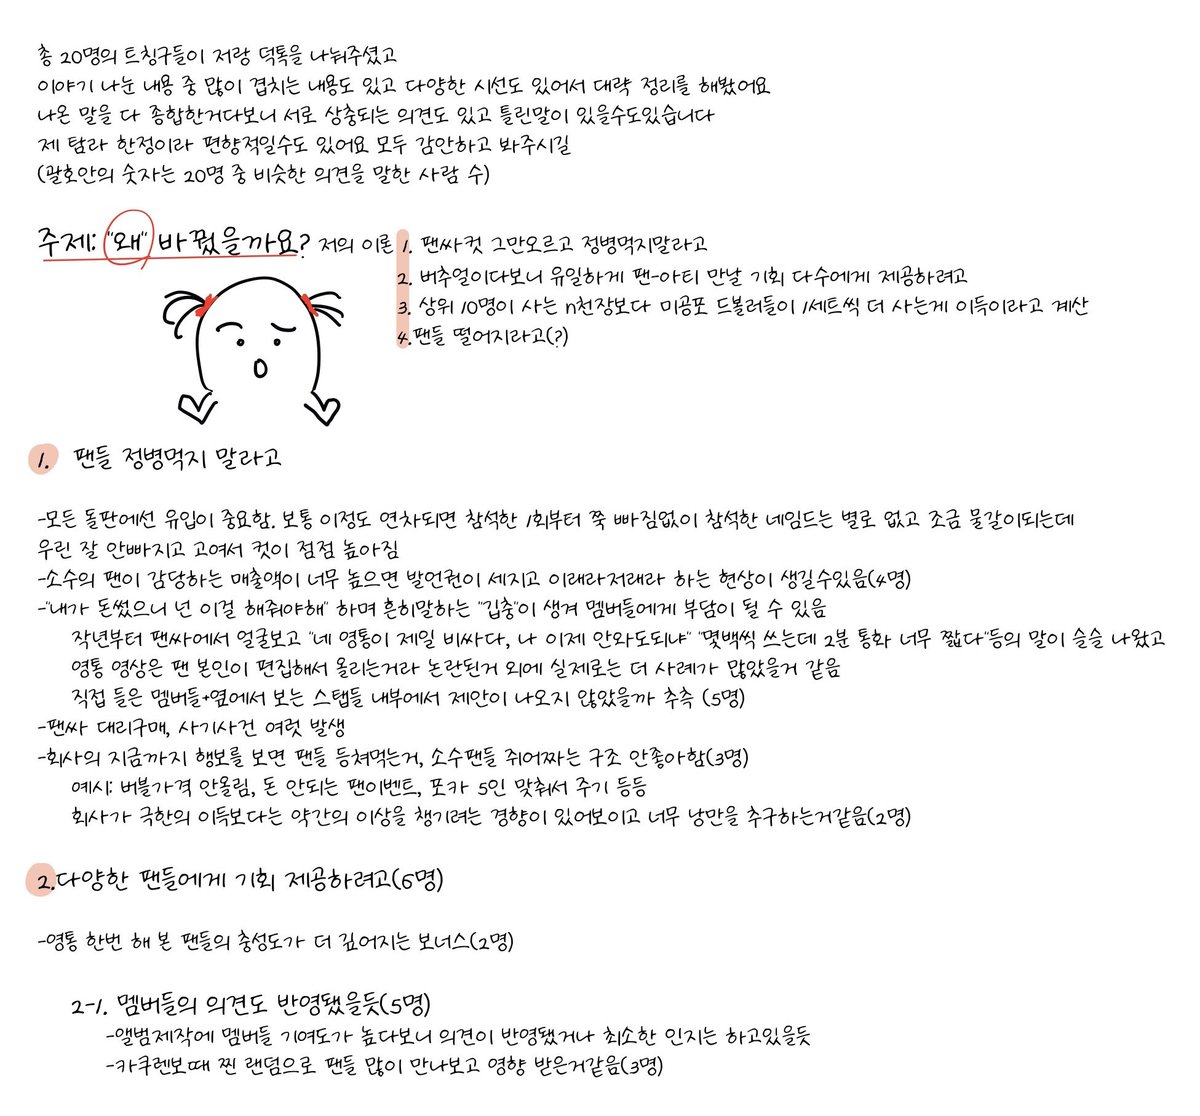 총 20명의 트친구들이 저랑 덕톡을 나눠주셨고
이야기 나눈 내용 중 많이 겹치는 내용도 있고 다양한 시선도 있어서 대략 정리를 해봤어요
나온 말을 다 종합한거다보니 서로 상충되는 의견도 있고 틀린말이 있을수도있습니다
제 탐라 한정이라 편향적일수도 있어요 모두 감안하고 봐주시길
(괄호안의 숫자는 20명 중 비슷한 의견을 말한 사람 수)
주제: "왜" 바꿨을까요? 저의 이론 1. 팬싸컷 그만오르고 정병먹지말라고
2. 버추얼이다보니 유일하게 팬-아티 만날 기회 다수에게 제공하려고
3. 상위 10명이 사는 n천장보다 미공포 드볼러들이 1세트씩 더 사는게 이득이라고 계산
4.팬들 떨어지라고(?)
1. 팬들 정병먹지 말라고
-모든 돌판에선 유입이 중요함. 보통 이정도 연차되면 참석한 1회부터 쭉 빠짐없이 참석한 네임드는 별로 없고 조금 물갈이되는데
우린 잘 안빠지고 고여서 컷이 점점 높아짐
-소수의 팬이 감당하는 매출액이 너무 높으면 발언권이 세지고 이래라저래라 하는 현상이 생길수있음(4명)
-"내가 돈썼으니 넌 이걸 해줘야해" 하며 흔히말하는 "김충"이 생겨 멤버들에게 부담이 될 수 있음
작년부터 팬싸에서 얼굴보고 "네 영통이 제일 비싸다, 나 이제 안와도되냐" "몇백씩 쓰는데 2분 통화 너무 짧다"등의 말이 슬슬 나왔고
영통 영상은 팬 본인이 편집해서 올리는거라 논란된거 외에 실제로는 더 사례가 많았을거 같음
직접 들은 멤버들+옆에서 보는 스탭들 내부에서 제안이 나오지 않았을까 추측 (5명)
-팬싸 대리구매, 사기사건 여럿 발생
-회사의 지금까지 행보를 보면 팬들 등쳐먹는거, 소수팬들 쥐어짜는 구조 안좋아함(3명)
예시: 버블가격 안올림, 돈 안되는 팬이벤트, 포카 5인 맞춰서 주기 등등
회사가 극한의 이득보다는 약간의 이상을 챙기려는 경향이 있어보이고 너무 낭만을 추구하는거같음(2명)
2.다양한 팬들에게 기회 제공하려고(6명)
-영통 한번 해 본 팬들의 충성도가 더 깊어지는 보너스(2명)
2-1. 멤버들의 의견도 반영됐을듯(5명)
-앨범제작에 멤버들 기여도가 높다보니 의견이 반영됐거나 최소한 인지는 하고있을듯
-카쿠렌보때 찐 랜덤으로 팬들 많이 만나보고 영향 받은거같음(3명)